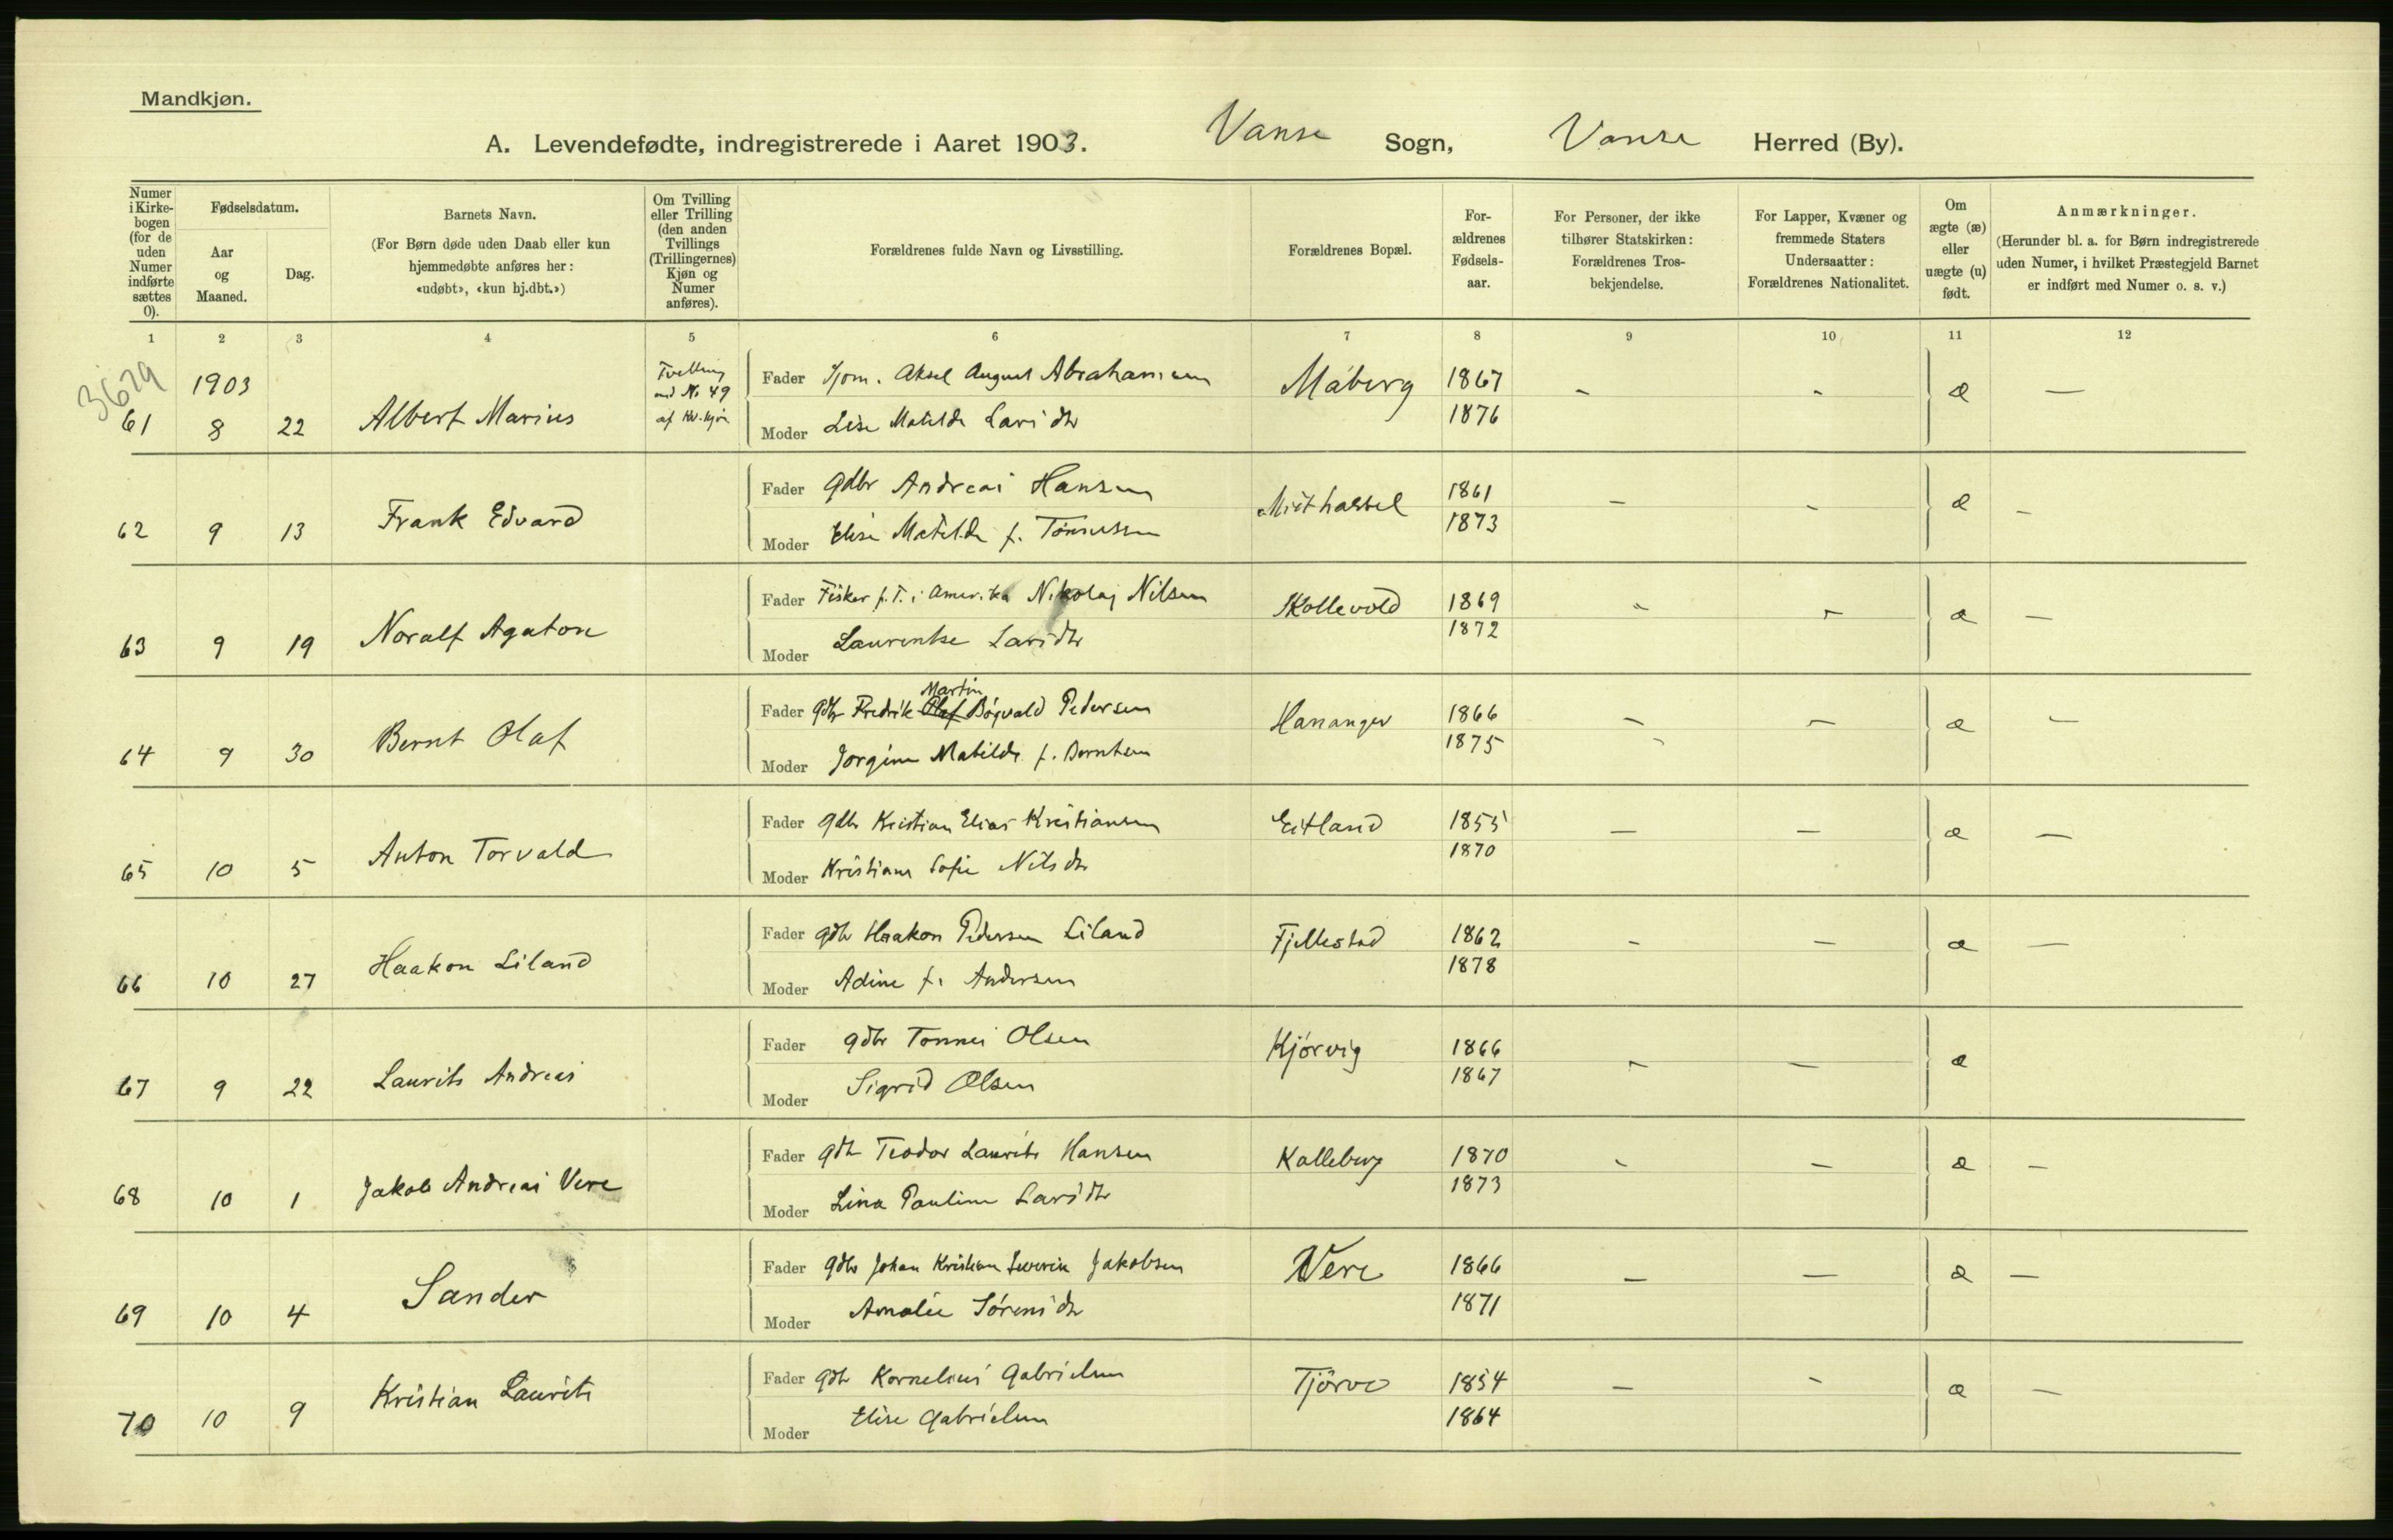 Mandkjøn.
A. Levendefødte, indregistrerede i Aaret 1903. Vanse Sogn, Vanse Herred (By).
Numer i Kirkebogen (for de uden Numer indførte sættes 0).
Fødselsdatum.
Aar og Maaned.
Dag.
Barnets Navn.
(For Børn døde uden Daab eller kun hjemmedøbte anføres her: «udøbt», «kun hj.dbt.»)
Om Tvilling eller Trilling (den anden Tvillings (Trillingernes) Kjøn og Numer anføres).
Forældrenes fulde Navn og Livsstilling.
Forældrenes Bopæl.
Forældrenes Fødselsaar.
For Personer, der ikke tilhører Statskirken: Forældrenes Trosbekjendelse.
For Lapper, Kvæner og fremmede Staters Undersaatter: Forældrenes Nationalitet.
Om ægte (æ) eller uægte (u) født.
Anmærkninger.
(Herunder bl. a. for Børn indregistrerede uden Numer, i hvilket Præstegjeld Barnet er indført med Numer o. s. v.)
1 2 3 4 5 6 7 8 9 10 11 12
3629
1903
61 8 22 Albert Marius Tvilling med No 49 af Kv.kjøn
Fader Sjøm. Aksel August Abrahamsen Máberg 1867 - - æ —
Moder Lise Matilde Larsdtr 1876
62 9 13 Frank Edvard
Fader Gdbr Andreas Hansen Midthassel 1861 - - æ -
Moder Elise Matilde f. Tønnesen 1873
63 9 19 Noralf Agaton
Fader Fisker p.T. i Amerika Nikolaj Nilsen Skollevold 1869 - - æ —
Moder Laurentse Larsdtr 1872
64 9 30 Bernt Olaf
Martin
Fader gdbr Fredrik Olaf Bógvald Pedersen Hananger 1866 - - æ -
Moder Jørgine Matilde f. Berntsen 1875
65 10 5 Anton Torvald
Fader gdbr Kristian Elias Kristiansen Eitland 1855 — — æ —
Moder Kristiane Sofie Nilsdtr 1870
66 10 27 Haakon Liland
Fader gdbr Haakon Pedersen Liland Fjellestad 1862 - - æ —
Moder Adine f. Andersen 1878
67 9 22 Laurits Andreas
Fader gdbr Tønnes Olsen Kjórvig 1866 - — æ
Moder Sigrid Olsen 1867
68 10 1 Jakob Andreas Vere
Fader gdbr Teodor Laurits Hansen Kalleberg 1870 - - æ -
Moder Lina Pauline Larsdtr 1873
69 10 4 Sander
Fader gdbr Johan Kristian Severin Jakobsen Vere 1866 — — æ —
Moder Amalie Sórensdtr 1871
70 10 9 Kristian Laurits
Fader gdbr Kornelius Gabrielsen Tjörve 1854 — - æ —
Moder Elise Gabrielsen 1864